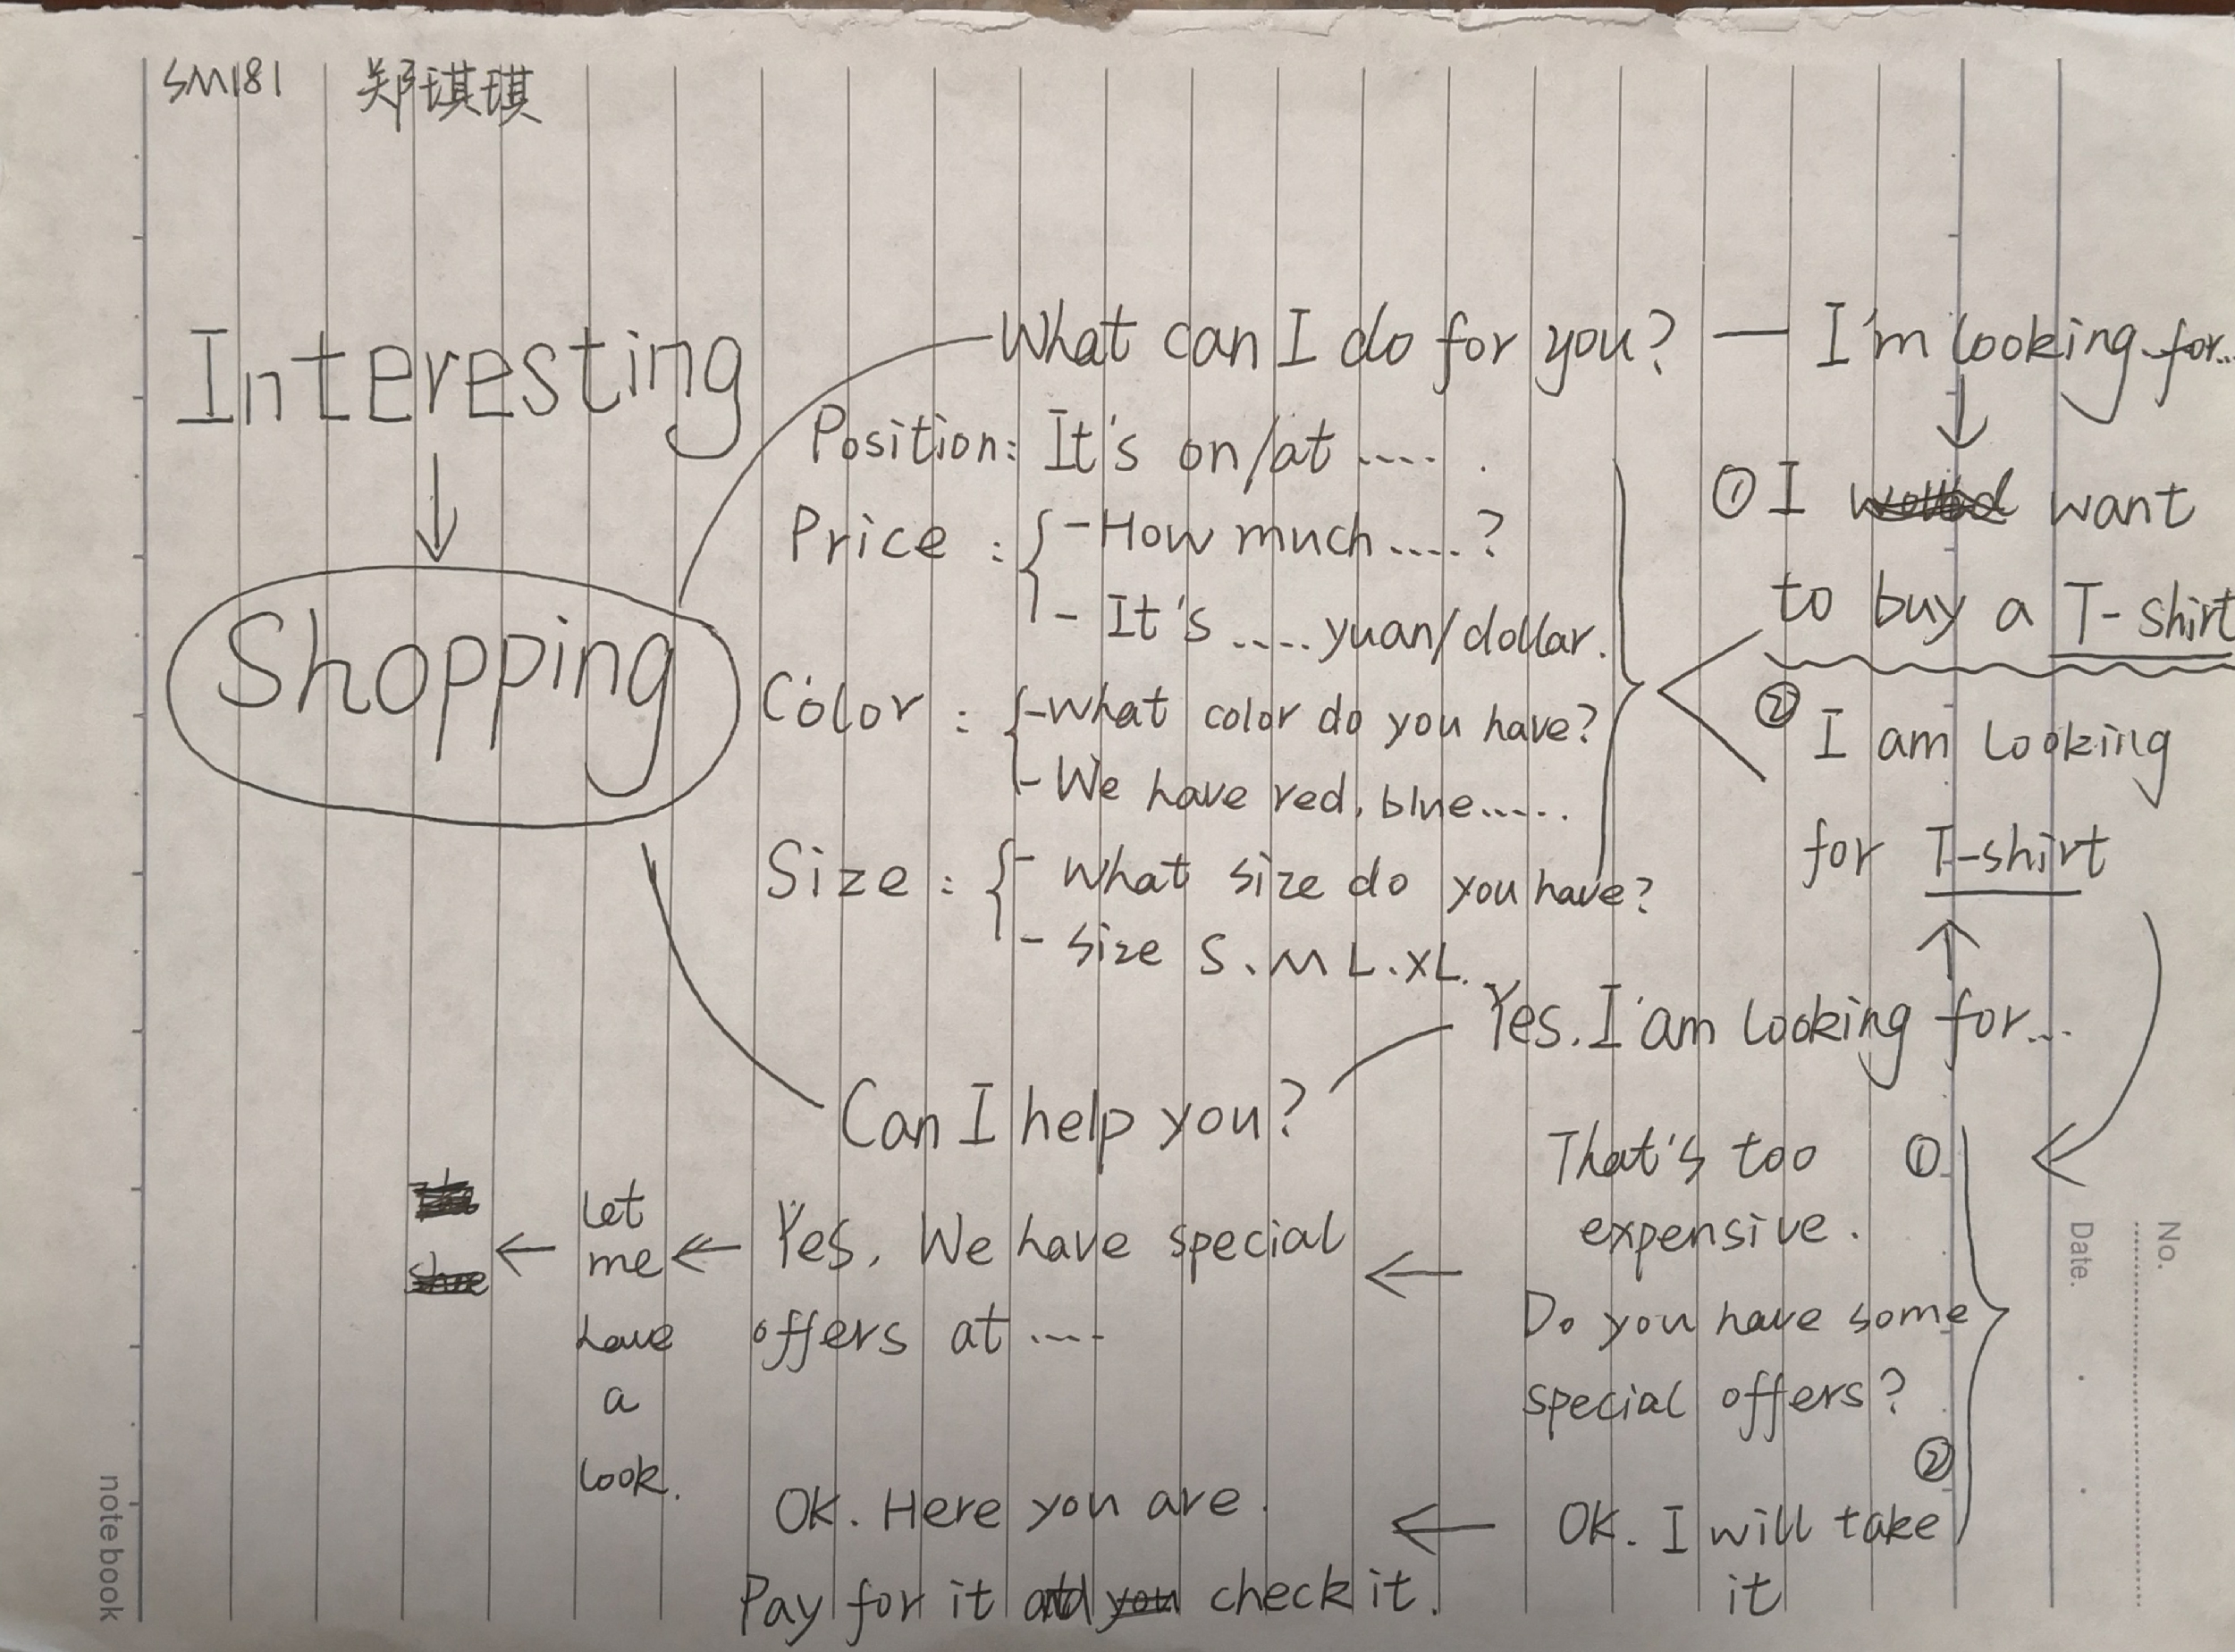 SM181 郑琪琪
Interesting
Shopping
What can I do for you? — I'm looking for...
Position: It's on/at ....
Price : - How much ....?
- It's .... yuan/dollar.
Color : - What color do you have?
- We have red, blue.....
Size : - What size do you have?
- size S、M L.XL.
① I want
to buy a T-shirt
② I am looking
for T-shirt
Yes. I am looking for...
Can I help you?
That's too ①
expensive.
Do you have some
special offers?
②
OK. I will take
it
Yes, We have special
offers at ....
let
me
have
a
look.
OK. Here you are.
Pay for it and check it.
No.
Date.
notebook